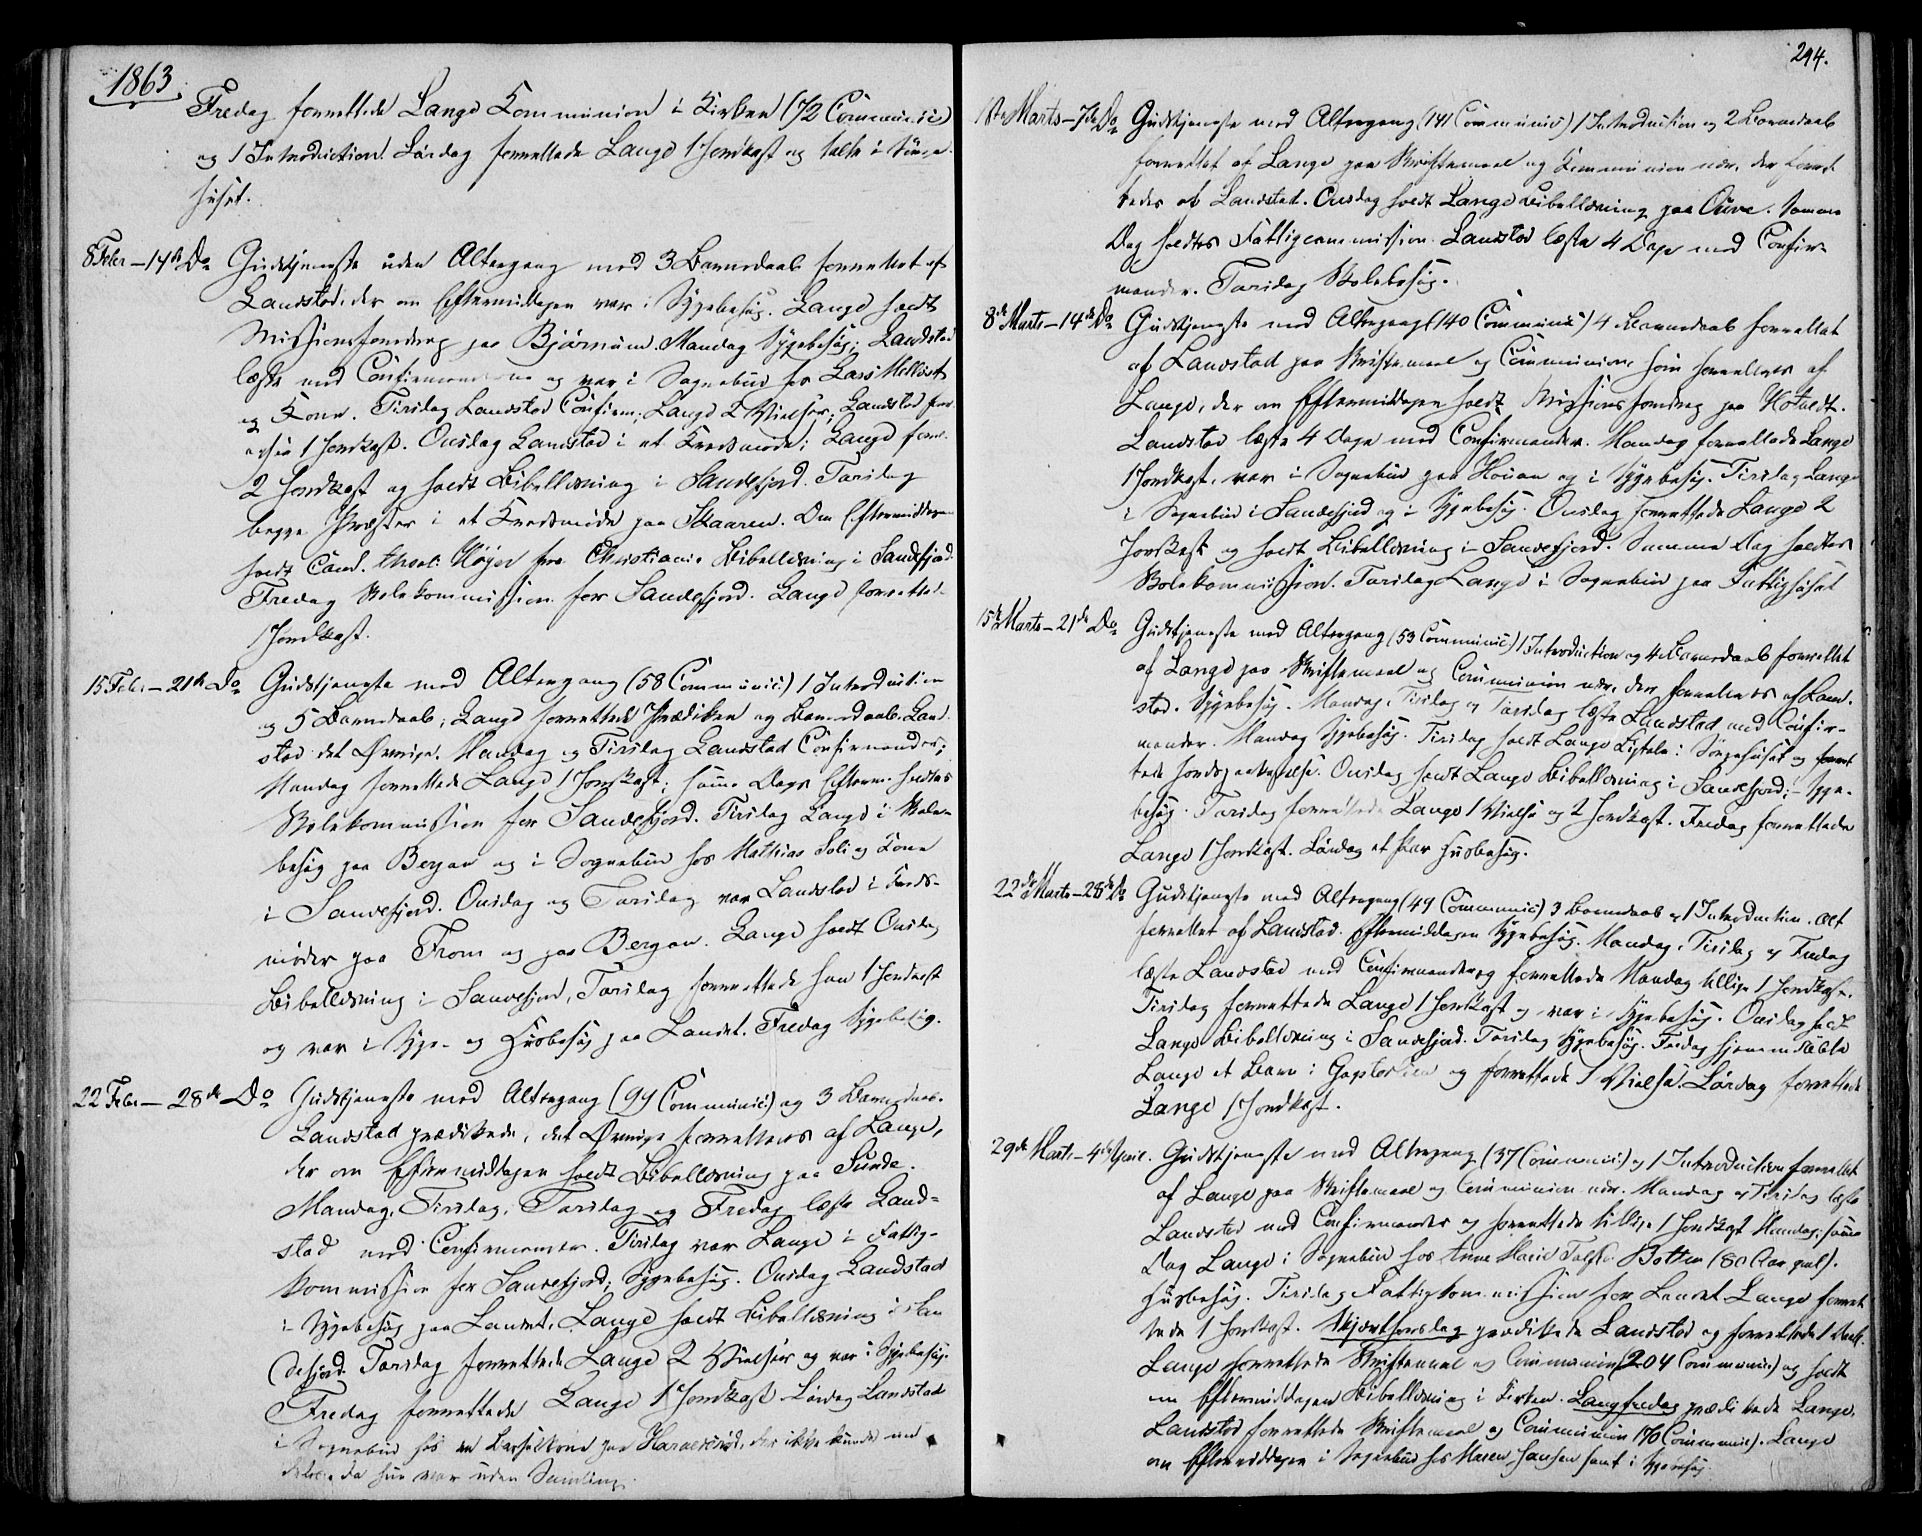 1863
Fredag forrettede Lange Kommunion i Kirken (72 Communic:)
og 1 Introduction. Lördag forrettede Lange 1 Jordkast og talte i Sörge-
huset.
8 Febr – 14de Do Gudstjeneste uden Altergang med 3 Barnedaab forrettet af
Landstad, der om Eftermiddagen var i Sygebesög. Lange holdt
Missionsforedrag paa Bjørnum. Mandag Sygebesög; Landstad
læste med Confirmanderne og var i Sognebud hos Lars
og Kone. Tirsdag Landstad Confirm; Lange 2 Vielser; Landstad for-
1 Jordkast. Onsdag Landstad i et Kredsmöde; Lange forr.
2 Jordkast og holdt Bibellæsning i Sandefjord. Torsdag
begge Præster i et Kredsmöde paa Skaaren. Om Eftermiddagen
holdt Cand. theol: Höjer fra Christiania Bibellæsning i Sandefjord.
Fredag Skolekommission for Sandefjord. Lange forrettede
1 Jordkast.
15 Febr – 21de Do Gudstjeneste med Altergang (58 Communic:) 1 Introduction
og 5 Barnedaab; Lange forrettede Prædiken og Barnedaab, Land-
stad det Øvrige. Mandag og Tirsdag Landstad Confirmander;
Mandag forrettede Lange 1 Jordkast; samme Dags Efterm. holdtes
Skolekommission for Sandefjord. Tirsdag Lange i Skole-
besög paa Bergan og i Sognebud hos Mathias Soli og Kone
i Sandefjord. Onsdag og Torsdag var Landstad i Kreds-
möder paa From og paa Bergan. Lange holdt Onsdag
Bibellæsning i Sandefjord, Torsdag forrettede han 1 Jordkast
og var i Syge- og Husbesög paa Landet. Fredag Sygebesög.
22 Febr – 28de Do Gudstjeneste med Altergang (99 Communic:) og 3 Barnedaab.
Landstad prædikede, det Øvrige forrettedes af Lange,
der om Eftermiddagen holdt Bibellæsning paa Sunde.
Mandag, Tirsdag, Torsdag og Fredag læste Land-
stad med Confirmander. Tirsdag var Lange i Fattig-
kommission for Sandefjord; Sygebesög. Onsdag Landstad
i Sygebesög paa Landet, Lange holdt Bibellæsning i San-
defjord. Torsdag forrettede Lange 2 Vielser og var i Sygebesög.
Fredag forrettede Lange 1 Jordkast. Lördag Landstad
i Sognebud hos en Barselkone paa Haraldsrød, der ikke kunde med-
deles, da hun var uden Samling.
294.
1ste Marts – 7de Do Gudstjeneste med Altergang (141 Communic:) 1 Introduction og 2 Barnedaab
forrettet af Lange paa Skriftemaal og Kommunion nær, der forret-
tedes af Landstad. Onsdag holdt Lange Bibellæsning paa Ouve. Samme
Dag holdtes Fattigcommission. Landstad læste 4 Dage med Confir-
mander. Torsdag Skolebesög.
8de Marts – 14de Do Gudstjeneste med Altergang (140 Communic:) 4 Barnedaab forrettet
af Landstad paa Skriftemaal og Communion, som forrettedes af
Lange, der om Eftermiddagen holdt Missionsforedrag paa
Landstad læste 4 Dage med Confirmander. Mandag forrettede Lange
1 Jordkast, var i Sognebud paa og i Sygebesög. Tirsdag Lange
i Sognebud i Sandefjord og i Sygebesög. Onsdag forrettede Lange 2
Jordkast og holdt Bibellæsning i Sandefjord. Samme Dag holdtes
Skolekommission. Torsdag Lange i Sognebud paa Fattighuset
15de Marts – 21de Do Gudstjeneste med Altergang (53 Communic:) 1 Introduction og 4 Barnedaab forrettet
af Lange paa Skriftemaal og Communion nær, der forrettedes af Land-
stad. Sygebesög. Mandag, Tirsdag og Torsdag læste Landstad med Confir-
mander. Mandag Sygebesög. Tirsdag holdt Lange Ligtale i Sörgehuset og forret-
tede Jordspaakastelse. Onsdag holdt Lange Bibellæsning i Sandefjord; – Syge-
besög. Torsdag forrettede Lange 1 Vielse og 2 Jordkast. Fredag forrettede
Lange 1 Jordkast. Lördag et Par Husbesög.
22de Marts – 28de Do Gudstjeneste med Altergang (49 Communic:) 3 Barnedaab og 1 Introduction. Alt
forrettet af Landstad. Eftermiddagen Sygebesög. Mandag, Tirsdag og Fredag
læste Landstad med Confirmander og forrettede Mandag tillige 1 Jordkast.
Tirsdag forrettede Lange 1 Jordkast og var i Sygebesög. Onsdag holdt
Lange Bibellæsning i Sandefjord. Torsdag Sygebesög. Fredag hjemmedöbte
Lange et Barn i og forrettede 1 Vielse. Lördag forrettede
Lange 1 Jordkast.
29de Marts – 4de April. Gudstjeneste med Altergang (37 Communic:) og 1 Introduction forrettet
af Lange paa Skriftemaal og Communion nær. Mandag og Tirsdag læste
Landstad med Confirmander og forrettede tillige 1 Jordkast Mandag; samme
Dag Lange i Sognebud hos Anne Marie Botten (80 Aar gml).
Husbesög. Tirsdag Fattigkommission for Landet. Lange forret-
tede 1 Jordkast. Skjærthorsdag prædikede Landstad og forrettede 1 Daab.
Lange forrettede Skriftemaal og Communion (204 Communic:) og holdt
om Eftermiddagen Bibellæsning i Kirken. Langfredag prædikede Lange.
Landstad forrettede Skriftemaal og Communion 170 Communic:). Lange
om Eftermiddagen i Sognebud hos Maren Hansen samt i Sygebesög.